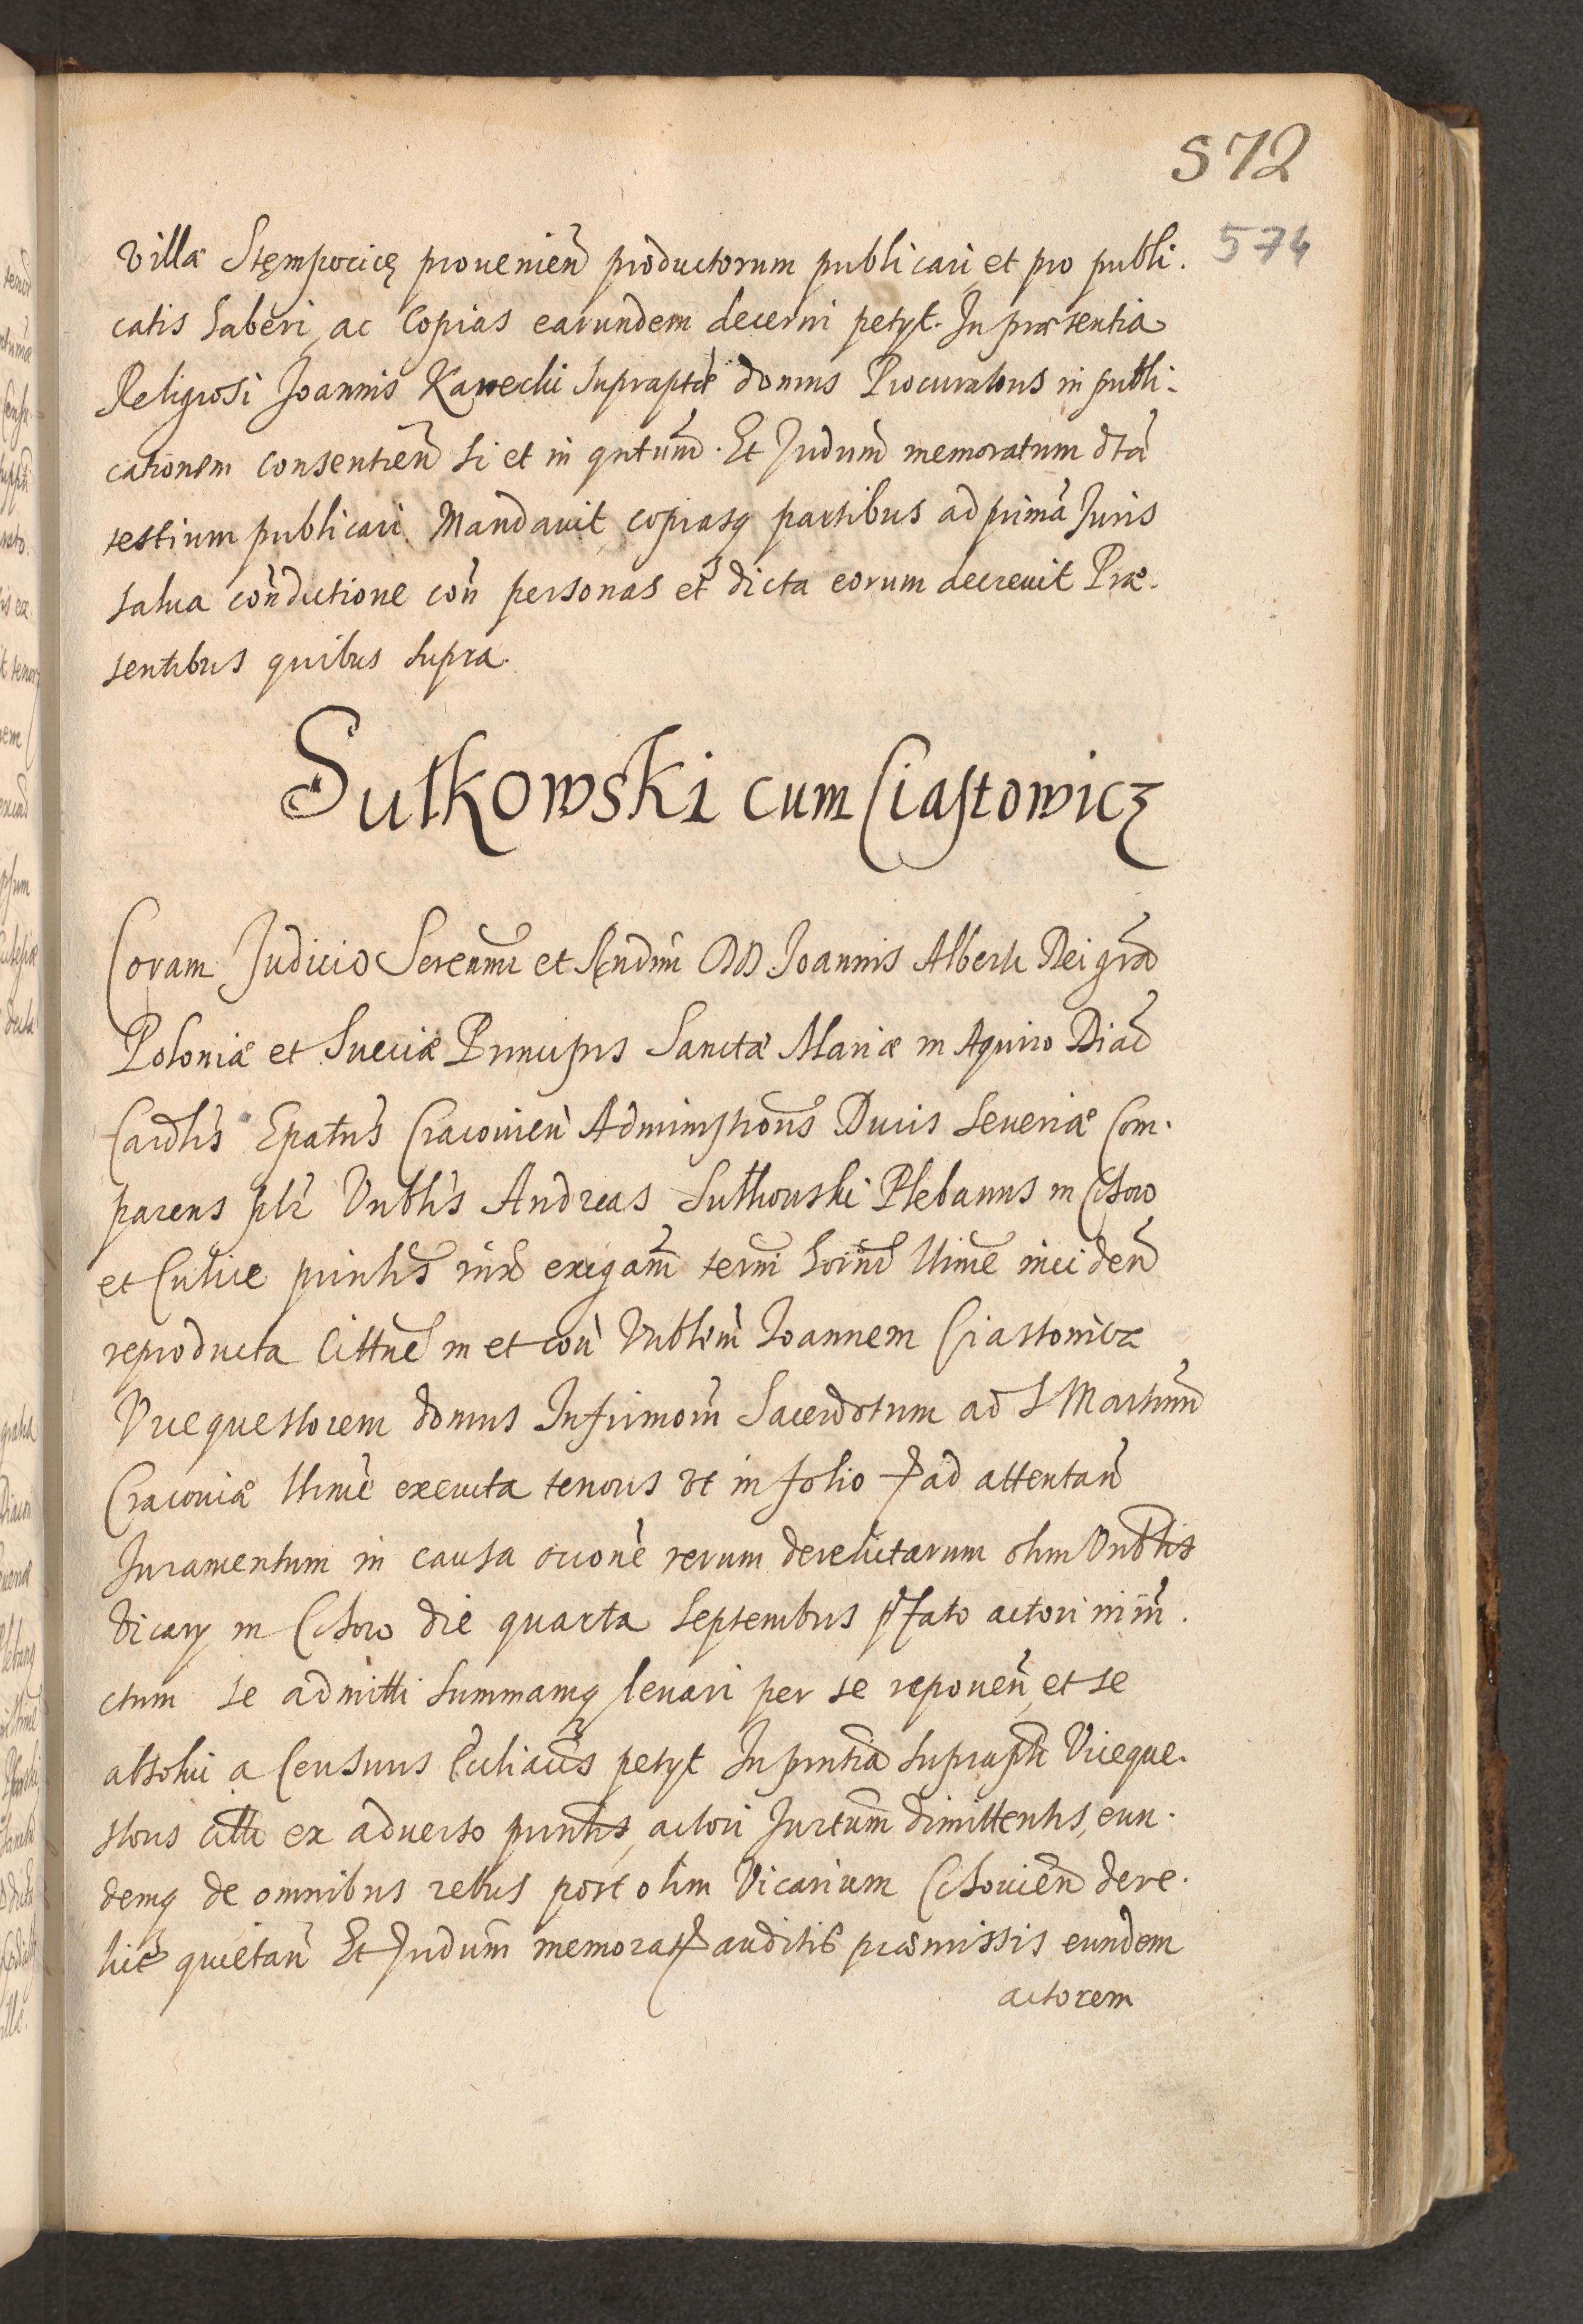 572
574
Villæ Stęmpocicę prouenien̄ productorum publicari et pro publi.
catis haberi, ac Copias earundem decerni petyt. In præsentia
Religiosi Joannis Kawecki supraptæ domus Procuratoris in publi-
cationem consentien̄ si et in qntum̄. Et Judum̄ memoratum dta
testium publicari Mandauit, copiasq partibus ad prima Juris
salua con̄dictione con̄ personas et dicta eorum decreuit Præ-
sentibus quibus supra.
Sulkowski cum Ciastowicz
Coram Judicio Serenmi et Rndmi DD Joannis Alberti Dei gra
Poloniæ et Sueciæ Principis Sanctæ Mariæ in Aquiro Diac
Cardlis Epatus Cracouien̄ Adminstroris Ducis Seueriæ Com.
parens plr Vnblis Andreas Sulkouski Plebanus in Cchow
et Culice prinlis exigam̄ termi horum̄ ltime inciden̄
reproducta Cittne in et con̄ Vnblem̄ Joannem Ciastowicz
Vicequestorem domus Infirmorum̄ Sacerdotum ad S Martinum̄
Cracouiæ ltime executa tenoris vt in folio ad attentan̄
Juramentum in causa occone rerum derelictarum olim Vnblis
Vicary in Cchow die quarta Septembris pfato actori niun.
ctum se admitti summamq leuari per se reponen̄, et se
absolui a Censuris Ecclicis petyt In pntia suprapti Viceque.
storis citti ex aduerso pntis, actori Jurtum̄ dimittentis, eun.
demq de omnibus rebus post olim Vicarium Cchouien̄ dere.
lic quietan̄ Et Judum̄ memorat auditis præmissis eundem
actorem